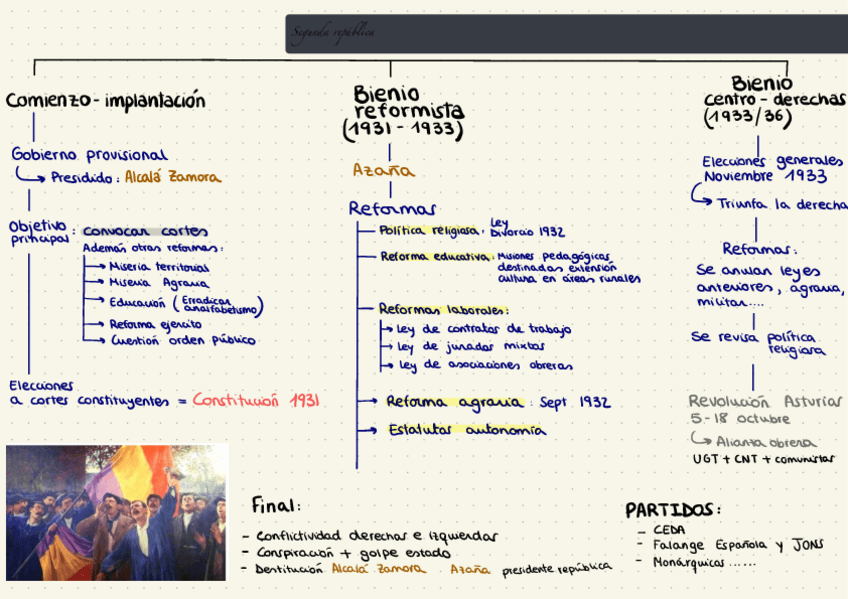 Segunda república
Comienzo - implantación
Gobierno provisional
Presidido: Alcalá Zamora
Objetivo principal: convocar cortes
Además otras reformas:
Miseria territorial
Miseria Agraria
Educación (Erradicar analfabetismo)
Reforma ejercito
Cuestión orden público
Elecciones
a cortes constituyentes = Constitución 1931
Bienio
reformista
(1931 - 1933)
Azaña
Reformas
Política religiosa: Ley Divorcio 1932
Reforma educativa: Misiones pedagógicas
destinadas extensión
cultura en áreas rurales
Reformas laborales:
Ley de contratos de trabajo
Ley de jurados mixtos
Ley de asociaciones obreras
Reforma agraria: Sept 1932
Estatutos autonomía
Bienio
centro - derechas
(1933/36)
Elecciones generales
Noviembre 1933
Triunfa la derecha
Reformas:
Se anulan leyes
anteriores, agraria,
militar....
Se revisa política
religiosa
Revolución Asturias
5-18 octubre
Alianza obrera
UGT + CNT + comunistas
Final:
- Conflictividad derechas e izquierdas
- Conspiración + golpe estado
- Destitución Alcalá Zamora Azaña presidente república
PARTIDOS:
- CEDA
- Falange Española y JONS
- Monárquicos ......